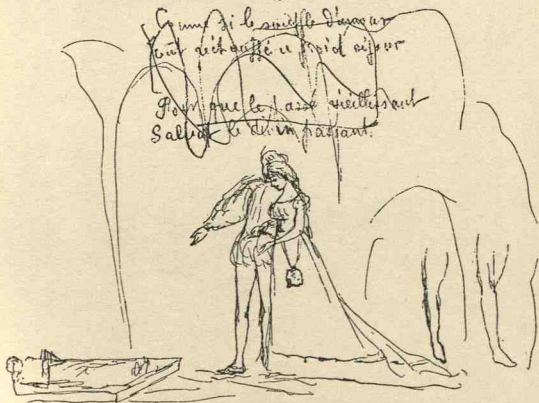 Comme si le souffle d'amour
Eût réchauffé ce froid séjour
Pour que le passé vieillissant
Saluât le divin passant.